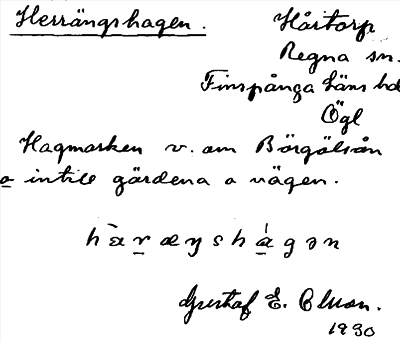 Herrängshagen.
Håstorp
Regna sn.
Finspånga läns hd
Ögl
Hagmarken v. om Börgölsån
o intill gärdena o vägen.
Gustaf E.
1930